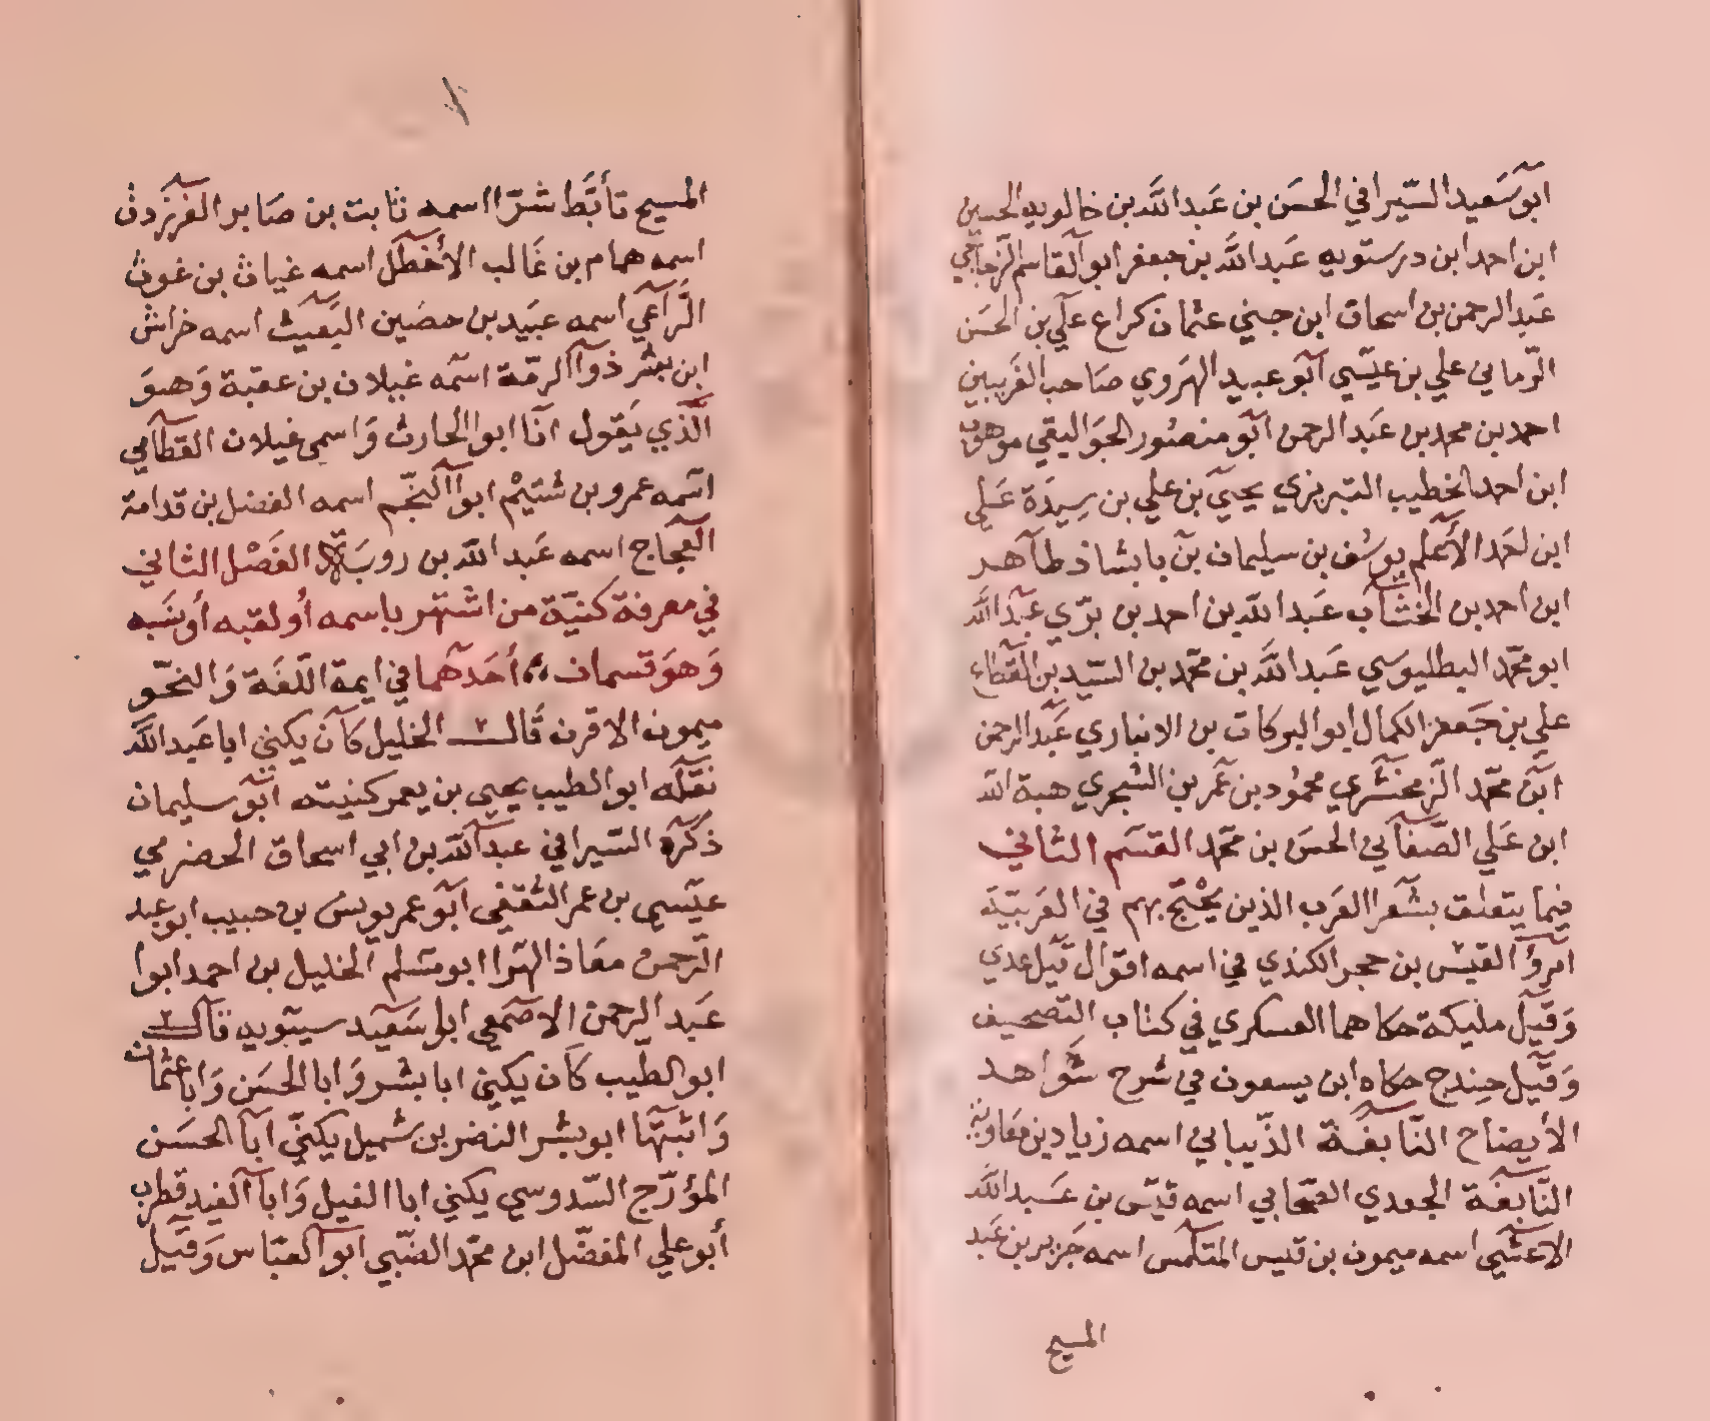 ابو سَعيد السّيرافي الحسَن بن عَبد اللَّه بن خالويه الحسين
ابن احمد ابن درستويه عَبد اللَّه بن جعفر ابو القاسم الزّجاجي
عَبد الرحمن بن اسحاق ابن جني عثمان كراع علي بن الحسَن
الرّماني علي بن عيسَي ابو عبيد الهَروي صَاحب الغَريبين
احمد بن محمد بن عَبد الرحمن ابو منصُور الجوَاليقي موهوب
ابن احمد الخطيب التبريزي يحيَي بن علي بن سِيدَة عَلي
ابن احمَد الأعلم يوسُف بن سليمان بن بابشاذ طاهر
ابن احمد بن الخشاب عَبد اللَّه بن احمد بن برّي عبد اللَّه
ابو محمّد البطليوسي عَبد اللَّه بن محمّد بن السّيد بن القطاع
علي بن جَعفر الكمال ابو البركات بن الانباري عَبد الرحمن
ابن محمّد الزّمخشَري محمُود بن عُمر بن الشجري هبة الله
ابن عَلي الصَّغاني الحسَن بن محمّد القسَم الثاني
فيما يتعلق بشعَرا العَرب الذين يُحْتجّ بهم في العَربيّة
امرؤ القيسْ بن حجر الكندي في اسمه اقوال قيل عدي
وَقيل مليكة حكاهما العسكري في كتاب التصحيف
وَقيل حندج حكاه ابن يسعون في شرح شوَاهد
الأيضاح النّابغَة الذّبياني اسمه زياد بن معَاوية
النّابغَة الجعدي الصّحابي اسمه قيس بن عَبد اللَّه
الاعشَي اسمه ميمون بن قيس المتلمّس اسمه جَرير بن عَبد
المسيح
المسيح تأبَّط شرّا اسمه ثابت بن جَابر الفرَزدق
اسمه همام بن غَالب الأخطَل اسمه غياث بن غوث
الرّاعي اسمه عبَيد بن حصَين البَعيث اسمه خراش
ابن بشر ذوا الرمّة اسمه غيلان بن عقبة وَهوَ
الّذي يَقول انَا ابوا الحارث وَاسمي غيلان القطامي
اسمه عمرو بن شتيمْ ابوا النّجم اسمه الفضل بن قدامة
العجاج اسمه عَبد الله بن روبَة الفَصْل الثاني
في معرفة كنيّة من اشتهر باسمه أو لقبه أو نسَبه
وَهوَ قسمان أحَدهما في ايمة اللّغَة وَالنحّو
ميمون الاقرن قَالـ الخليل كان يكني ابا عَبد اللَّه
نقَله ابو الطيب يحيى بن يعمر كنيته ابو سليمان
ذكره السّيرافي عبد اللَّه بن ابي اسحاق الحضرمي
عيسَي بن عمر الثقفي ابو عمر يونس بن حبيب ابو عبد
الرّحمن معَاذ الهرّا ابو مسَلم الخليل بن احمد ابوا
عَبد الرحمن الاصمَعي ابو سَعيد سيبَويه قالـ
ابو الطيب كَان يكني ابا بشر وَابا الحسَن وَابا عثمان
وَاثبتها ابو بشر النضر بن شميل يكنيّ ابا الحسَن
المؤرّج السّدوسي يكني ابا الفيل وَابا الفيد قطرب
أبو علي المفضّل ابن محمّد الضّبي ابو العبّاس وَقيل